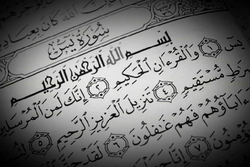 سُورَةُ يسٓ
بِسْمِ ٱللَّهِ ٱلرَّحْمَٰنِ ٱلرَّحِيمِ
١ وَٱلْقُرْءَانِ ٱلْحَكِيمِ ٢ إِنَّكَ لَمِنَ ٱلْمُرْسَلِينَ
مُّسْتَقِيمٍ ٤ تَنزِيلَ ٱلْعَزِيزِ ٱلرَّحِيمِ ٥
ءَابَآؤُهُمْ فَهُمْ غَٰفِلُونَ ٦ لَقَدْ